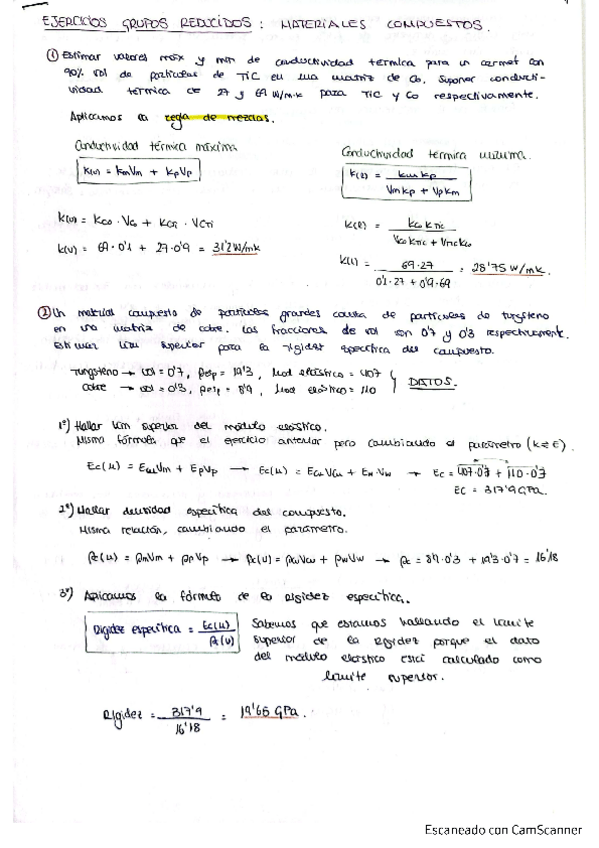 EJERCICIOS GRUPOS REDUCIDOS: MATERIALES COMPUESTOS.
① Estimar valores máx y mín de conductividad térmica para un cermet con
90% vol de partículas de TiC en una matriz de Co. Suponer conducti-
vidad térmica de 27 y 69 W/m·K para TiC y Co respectivamente.
Aplicamos la regla de mezclas.
Conductividad térmica máxima
K(u) = KmVm + KpVp
K(u) = Kco · Vco + KCTi · VCTi
K(u) = 69 · 0'1 + 27 · 0'9 = 31'2 W/mk
Conductividad térmica mínima.
K(l) = KmKp / VmKp + VpKm
K(l) = KcoKTic / VcoKTic + VTicKco
K(l) = 69·27 / 0'1·27 + 0'9·69 = 28'75 W/mk.
② Un material compuesto de partículas grandes consta de partículas de tungsteno
en una matriz de cobre. Las fracciones de vol son 0'7 y 0'3 respectivamente.
Estimar lim superior para la rigidez específica del compuesto.
Tungsteno → vol = 0'7, ρesp = 19'3, Mod elástico = 407
Cobre → vol = 0'3, ρesp = 8'9, Mod elástico = 110
DATOS.
1º) Hallar lim superior del módulo elástico.
Misma fórmula que el ejercicio anterior pero cambiando el parámetro (K⇄E).
Ec(u) = EmVm + EpVp → Ec(u) = EcuVcu + EwVw → Ec = 407·0'7 + 110·0'3
Ec = 317'9 GPa.
2º) Hallar densidad específica del compuesto.
Misma relación, cambiando el parámetro.
ρc(u) = ρmVm + ρpVp → ρc(u) = ρcuVcu + ρwVw → ρc = 8'9·0'3 + 19'3·0'7 = 16'18
3º) Aplicamos la fórmula de la rigidez específica.
Rigidez específica = Ec(u) / ρc(u)
Sabemos que estamos hallando el límite
superior de la rigidez porque el dato
del módulo elástico está calculado como
límite superior.
Rigidez = 317'9 / 16'18 = 19'65 GPa.
Escaneado con CamScanner